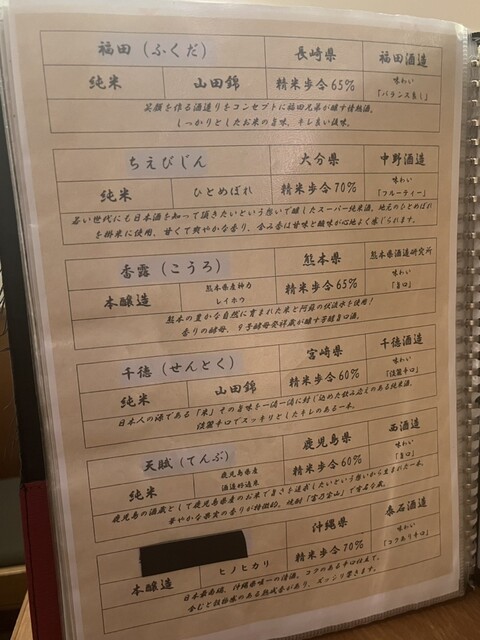 福田（ふくだ） 長崎県 福田酒造
純米 山田錦 精米歩合65% 味わい「バランス良し」
笑顔を作る酒造りをコンセプトに福田兄弟が醸す情熱酒。
しっかりとしたお米の旨味、キレ良い後味。
ちえびじん 大分県 中野酒造
純米 ひとめぼれ 精米歩合70% 味わい「フルーティー」
若い世代にも日本酒を知って頂きたいという想いで醸したスーパー純米酒。地元のひとめぼれ
を掛米に使用、甘くて爽やかな香り、含み香は甘味と酸味が心地よく感じられます。
香露（こうろ） 熊本県 熊本県酒造研究所
本醸造 熊本県産神力 レイホウ 精米歩合65% 味わい「旨口」
熊本の豊かな自然に育まれた米と阿蘇の伏流水を使用！
香りの酵母、9号酵母発祥蔵が醸す芳醇旨口酒。
千徳（せんとく） 宮崎県 千徳酒造
純米 山田錦 精米歩合60% 味わい「淡麗辛口」
日本人の魂である「米」その旨味を一滴一滴に封じ込めた飲み応えある純米酒。
淡麗辛口でスッキリとしたキレのある一本。
天賦（てんぶ） 鹿児島県 西酒造
純米 鹿児島県産 酒造好適米 精米歩合60% 味わい「旨口」
鹿児島の酒蔵として鹿児島県産のお米で旨さを追求したいという想いから生まれた一本。
華やかな果実の香りが特徴的。焼酎「富乃宝山」で有名な蔵。
沖縄県 泰石酒造
本醸造 ヒノヒカリ 精米歩合70% 味わい「コクあり辛口」
日本最南端、沖縄県唯一の清酒。コクのある辛口仕立て。
含むと穀物感のある熟成香があり、ズッシリ響きます。